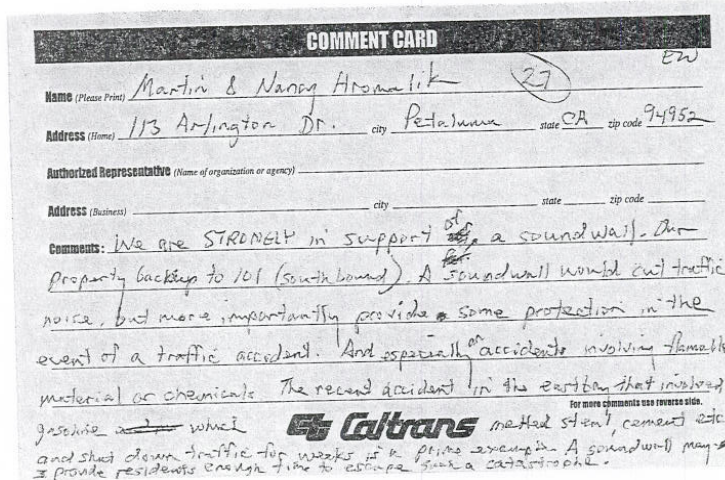 COMMENT CARD
27 EW
Name (Please Print) Martin & Nancy Hromalik
Address (Home) 113 Arlington Dr. city Petaluma state CA zip code 94952
Authorized Representative (Name of organization or agency)
Address (Business) city state zip code
Comments: We are STRONGLY in support of a soundwall. Our
property backs up to 101 (southbound). A soundwall would cut traffic
noise, but more importantly provide some protection in the
event of a traffic accident. And especially accidents involving flamable
material or chemicals. The recent accident in the eastbay that involved
For more comments use reverse side.
gasoline which Caltrans melted steel, cement etc.
and shut down traffic for weeks is a prime example. A soundwall may
provide residents enough time to escape such a catastrophe.